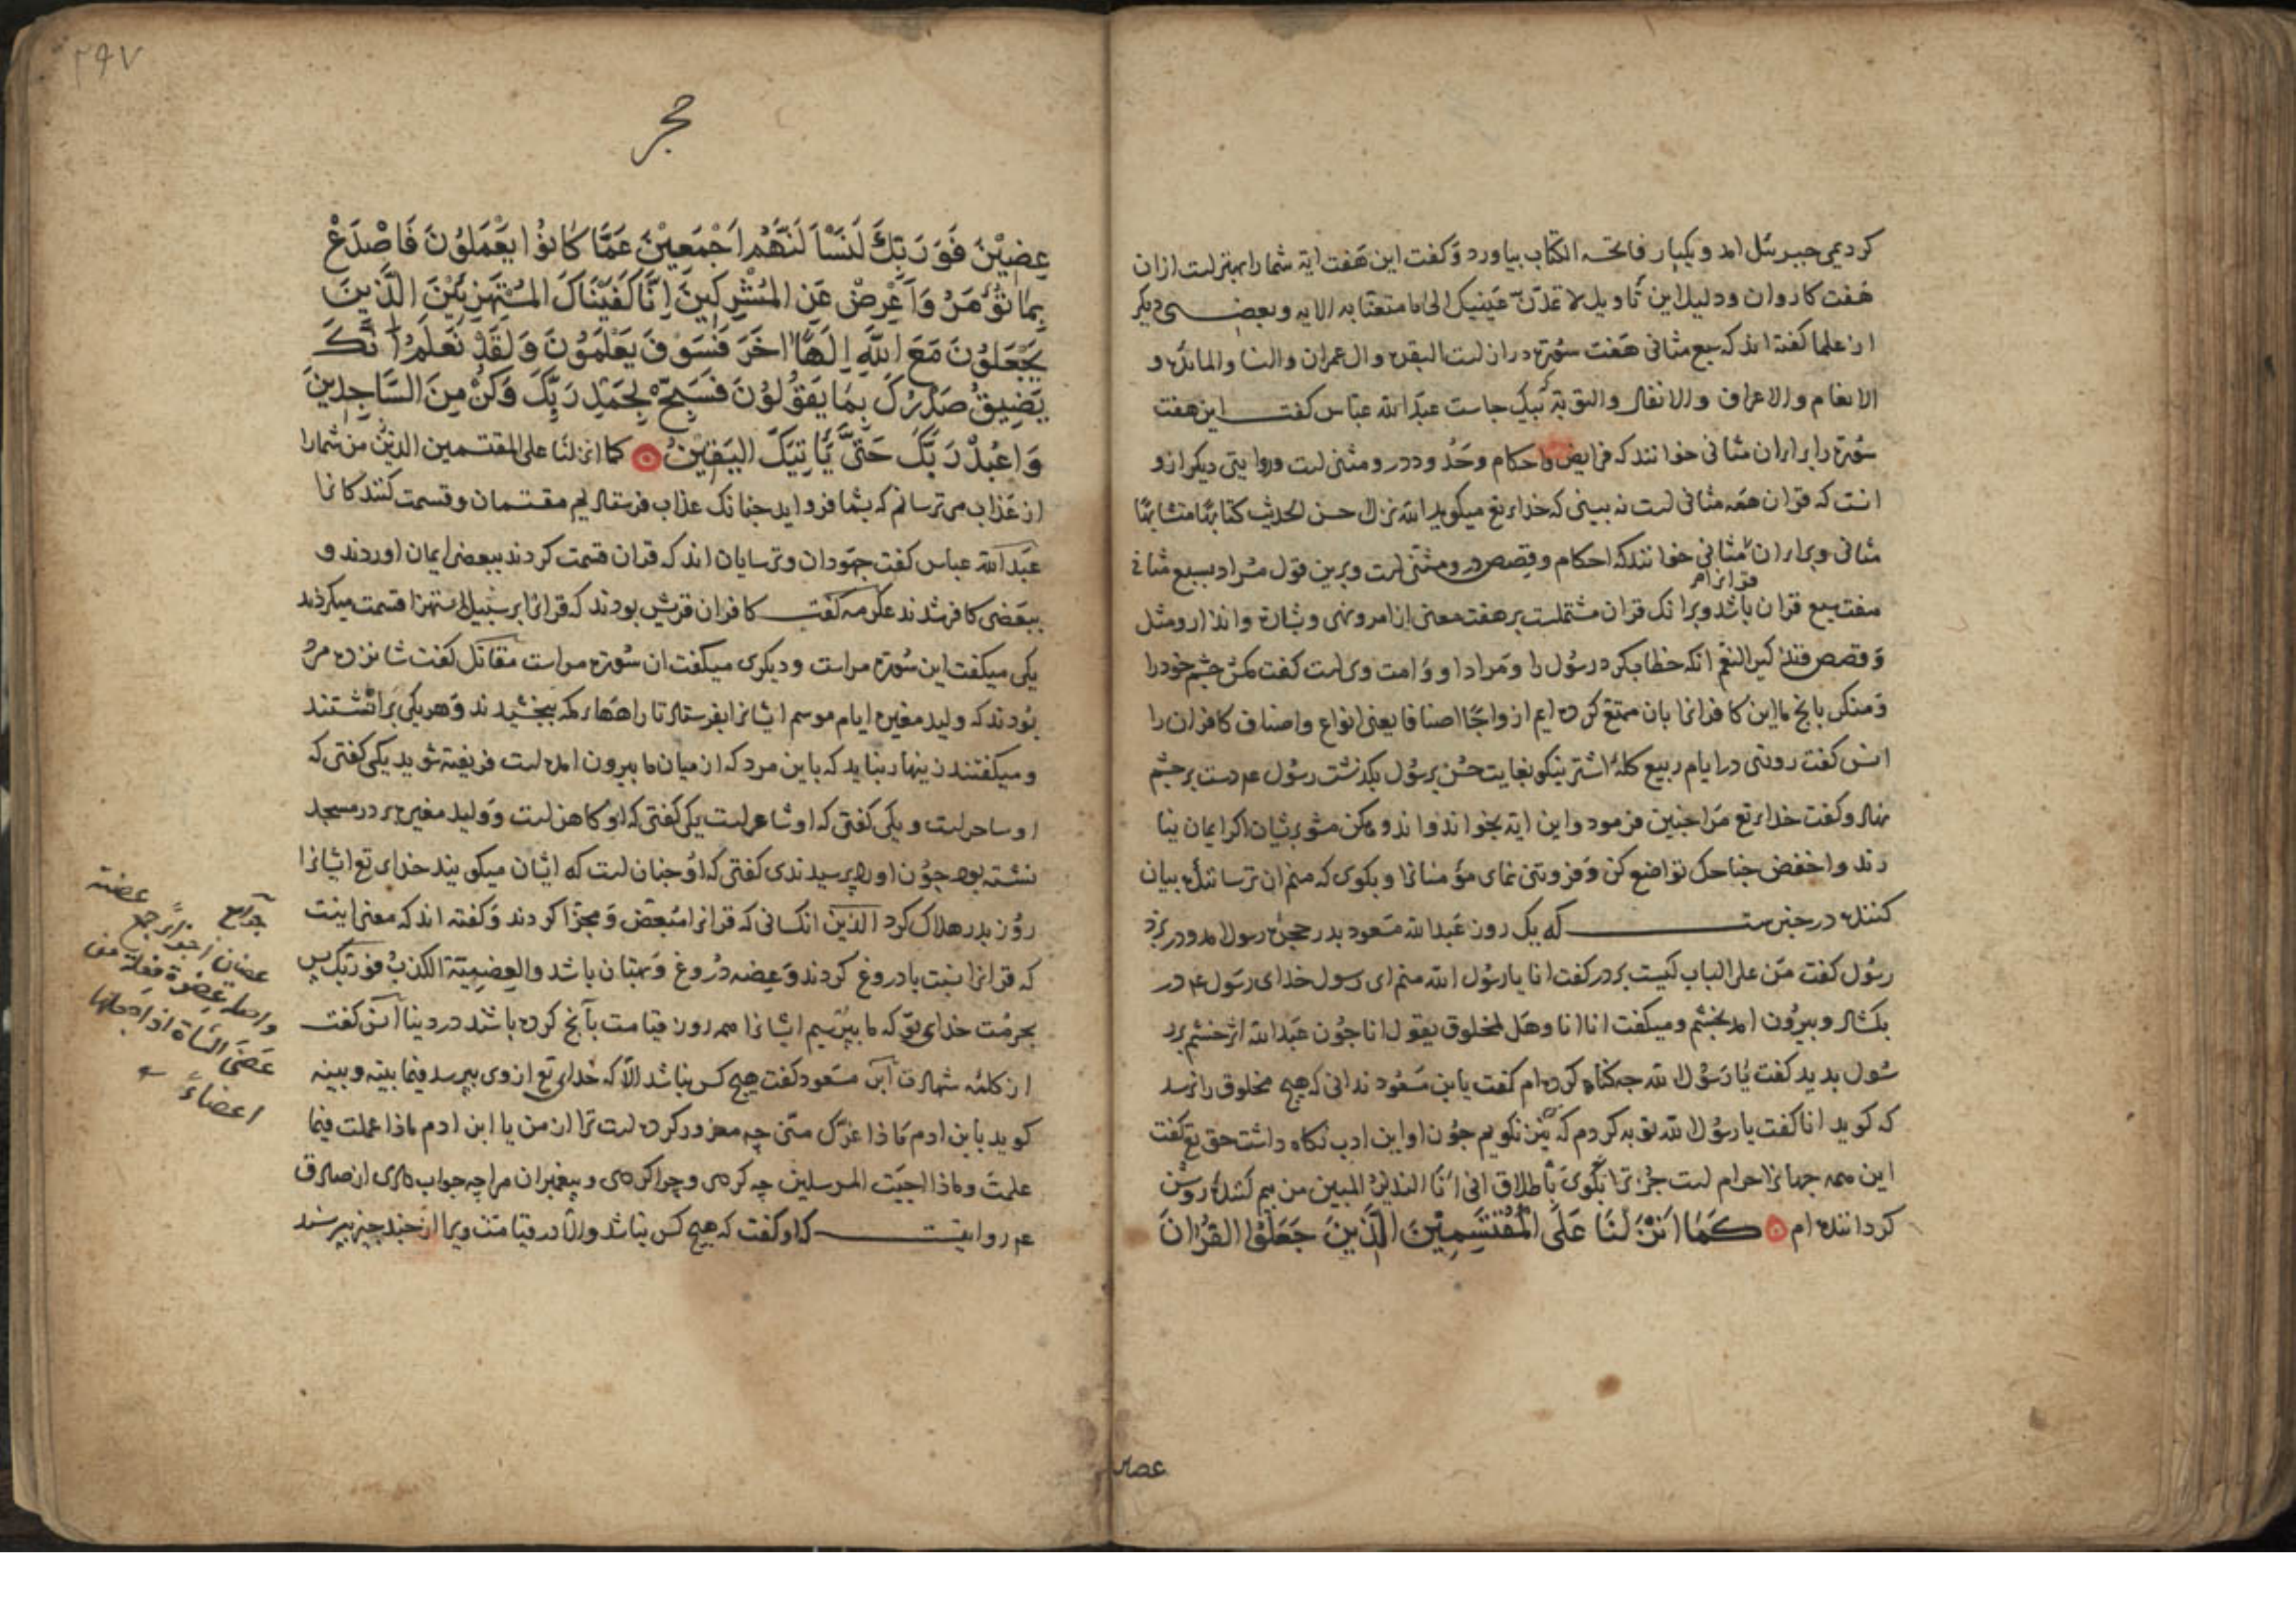 کردیمی جبرئیل امد و یکبار فاتحه الکتاب بیاورد و کفت این هفت ایة شما را بهتر است ازان
هفت کاروان ودلیل این تاویل لا تمدّنّ عینیک الی ما متعنا به الایه وبعضی دیکر
از علما کفته اند که سبع مثانی هفت سُورَة دراز است البقره وال عمران والنسا والمائدة و
الانعام والاعراف والانفال والتوبة بیک جاست عبد الله عباس کفت این هفت
سُورَة را برای ان مثانی خوانند که فرایض واحکام وحُدود درو مثنی است وروایتی دیکر ازو
انست که قران همه مثانی است نه بینی که خدای تع میکوید الله نزل احسن الحدیث کتابًا متشابهًا
مثانی وبرای ان مثانی خوانند که احکام وقصص درو مثنّی است وبرین قول مُراد بسبع مثانی
هفت سبع قران باشد وبرانک قران مشتملست بر هفت معنی از امر ونهی وبشارة وانذار ومثل
وقصص انکه خطاب کرد رسُول را ومراد او وامت وی است کفت مکش چشم خود را
ومنکر بانچ ما این کافرانرا بان ممتع کرده ایم ازواجًا اصنافا یعنی انواع واصناف کافران را
انس کفت روزی در ایام ربیع کلهٔ اشتر نیکو بغایت حُسن برسُول بکذشت رسُول عم دست بر چشم
نهاد وکفت خدای تع مرا جنین فرمود واین ایة بخواند واندوهکن مشو برشان اکر ایمان نیا
رند واخفض جناحک تواضع کن وفروتنی نمای مؤمنانرا وبکوی که منم ان ترساننده بیان
کننده در خبرست که یک روز عبد الله مسعود بدر حجرهٔ رسول امد ودر بزد
رسُول کفت من علی الباب کیست بر در کفت انا یا رسُول الله منم ای رسول خدای رسول عم در
بکشاد وبیرُون امد بخشم ومیکفت انا انا وهل لمخلوق یقول انا جُون عبد الله اثر خشم بر ر
سُول بدید کفت یا رسُول الله چه کناه کرده ام کفت یا بن مسعُود ندانی که هیچ مخلوق را نرسد
که کوید انا کفت یا رسُول الله توبه کردم که نیز نکویم جُون او این ادب نکاه داشت حق تع کفت
این همه جهانرا حرام است جُز ترا بکوی باطلاق انی انا النذیر المبین من بیم کننده روشن
کرداننده ام کَمَا اَنْزَلْنَا عَلَی المُقْتَسِمِیْنَ الَّذِینَ جَعَلُوْا القُرْانَ
عضین
۲۹۷
حجر
عِضِیْنَ فَوَرَبِّکَ لَنَسْأَلَنَّهُمْ اَجْمَعِیْنَ عَمَّا کَانُوْا یَعْمَلُوْنَ فَاصْدَعْ
بِمَا تُؤْمَرُ وَاَعْرِضْ عَنِ المُشْرِکِینَ اِنَّا کَفَیْنَاکَ المُسْتَهْزِئِیْنَ الَّذِینَ
یَجْعَلُوْنَ مَعَ اللّٰهِ اِلَهًا اخَرَ فَسَوْفَ یَعْلَمُوْنَ وَلَقَدْ نَعْلَمُ اَنَّکَ
یَضِیقُ صَدْرُکَ بِمَا یَقُوْلُوْنَ فَسَبِّحْ بِحَمْدِ رَبِّکَ وَکُنْ مِنَ السَّاجِدِینَ
وَاعْبُدْ رَبَّکَ حَتَّی یَاْتِیَکَ الیَقِیْنُ کما انزلنا علی المقتسمین الذین من شما را
از عذاب می ترسانم که بشما فرو اید جنانک عذاب فرستادیم مقتسمان وقسمت کنندکانرا
عبد الله عباس کفت جهودان وترسایان اند که قران قسمت کردند ببعضی ایمان اوردند و
ببعضی کافر شدند عکرمه کفت کافران قریش بودند که قرانرا بر سبیل استهزا قسمت میکردند
یکی میکفت این سُورَة مراست ودیکری میکفت ان سُورَة مراست مقاتل کفت شانزده مرد
بُودند که ولید مغیره ایام موسم ایشانرا بفرستاد تا راههای مکه ببخشیدند وهر یکی برانشستند
ومیکفتند زینهار نباید که باین مرد که از میان ما بیرون امده است فریفته شوید یکی کفتی که
او ساحر است ویکی کفتی که او شاعر است یکی کفتی که او کاهن است وولید مغیره بر در مسجد
نشسته بود جُون اورا پرسیدندی کفتی که او جنان است که ایشان میکویند خدای تع ایشانرا
روز بدر هلاک کرد الذین انکسانی که قرانرا مُبعّض ومجزّا کردند وکفته اند که معنی اینست
که قرانرا نسبت با دروغ کردند وعِضه دُروغ وبهتان باشد والعِضِیهَة الکذب فوربّک پس
بحرمت خدای تو که ما بپرسیم ایشانرا همه روز قیامت بآنچ کرده باشند در دنیا انس کفت
از کلمهٔ شهادت ابن مسعود کفت هیچ کس نباشد الّا که خدای تع از وی بپرسد فیما بینه وبینه
کوید یا بن ادم ماذا غرّک منّی چه مغرور کرده است ترا از من یا ابن ادم ماذا عملت فیما
علمت وماذا اجبت المرسلین چه کردی وچرا کردی وپیغمبران مرا چه جواب دادی از صادق
عم روایتست که او کفت که هیچ کس نباشد والّا در قیامت ویرا از چند چیز بپرسند
عضان
واصلها عِضوَة فِعلَة من
عَضَّی الشاة اذا جعلها
اعضاءً